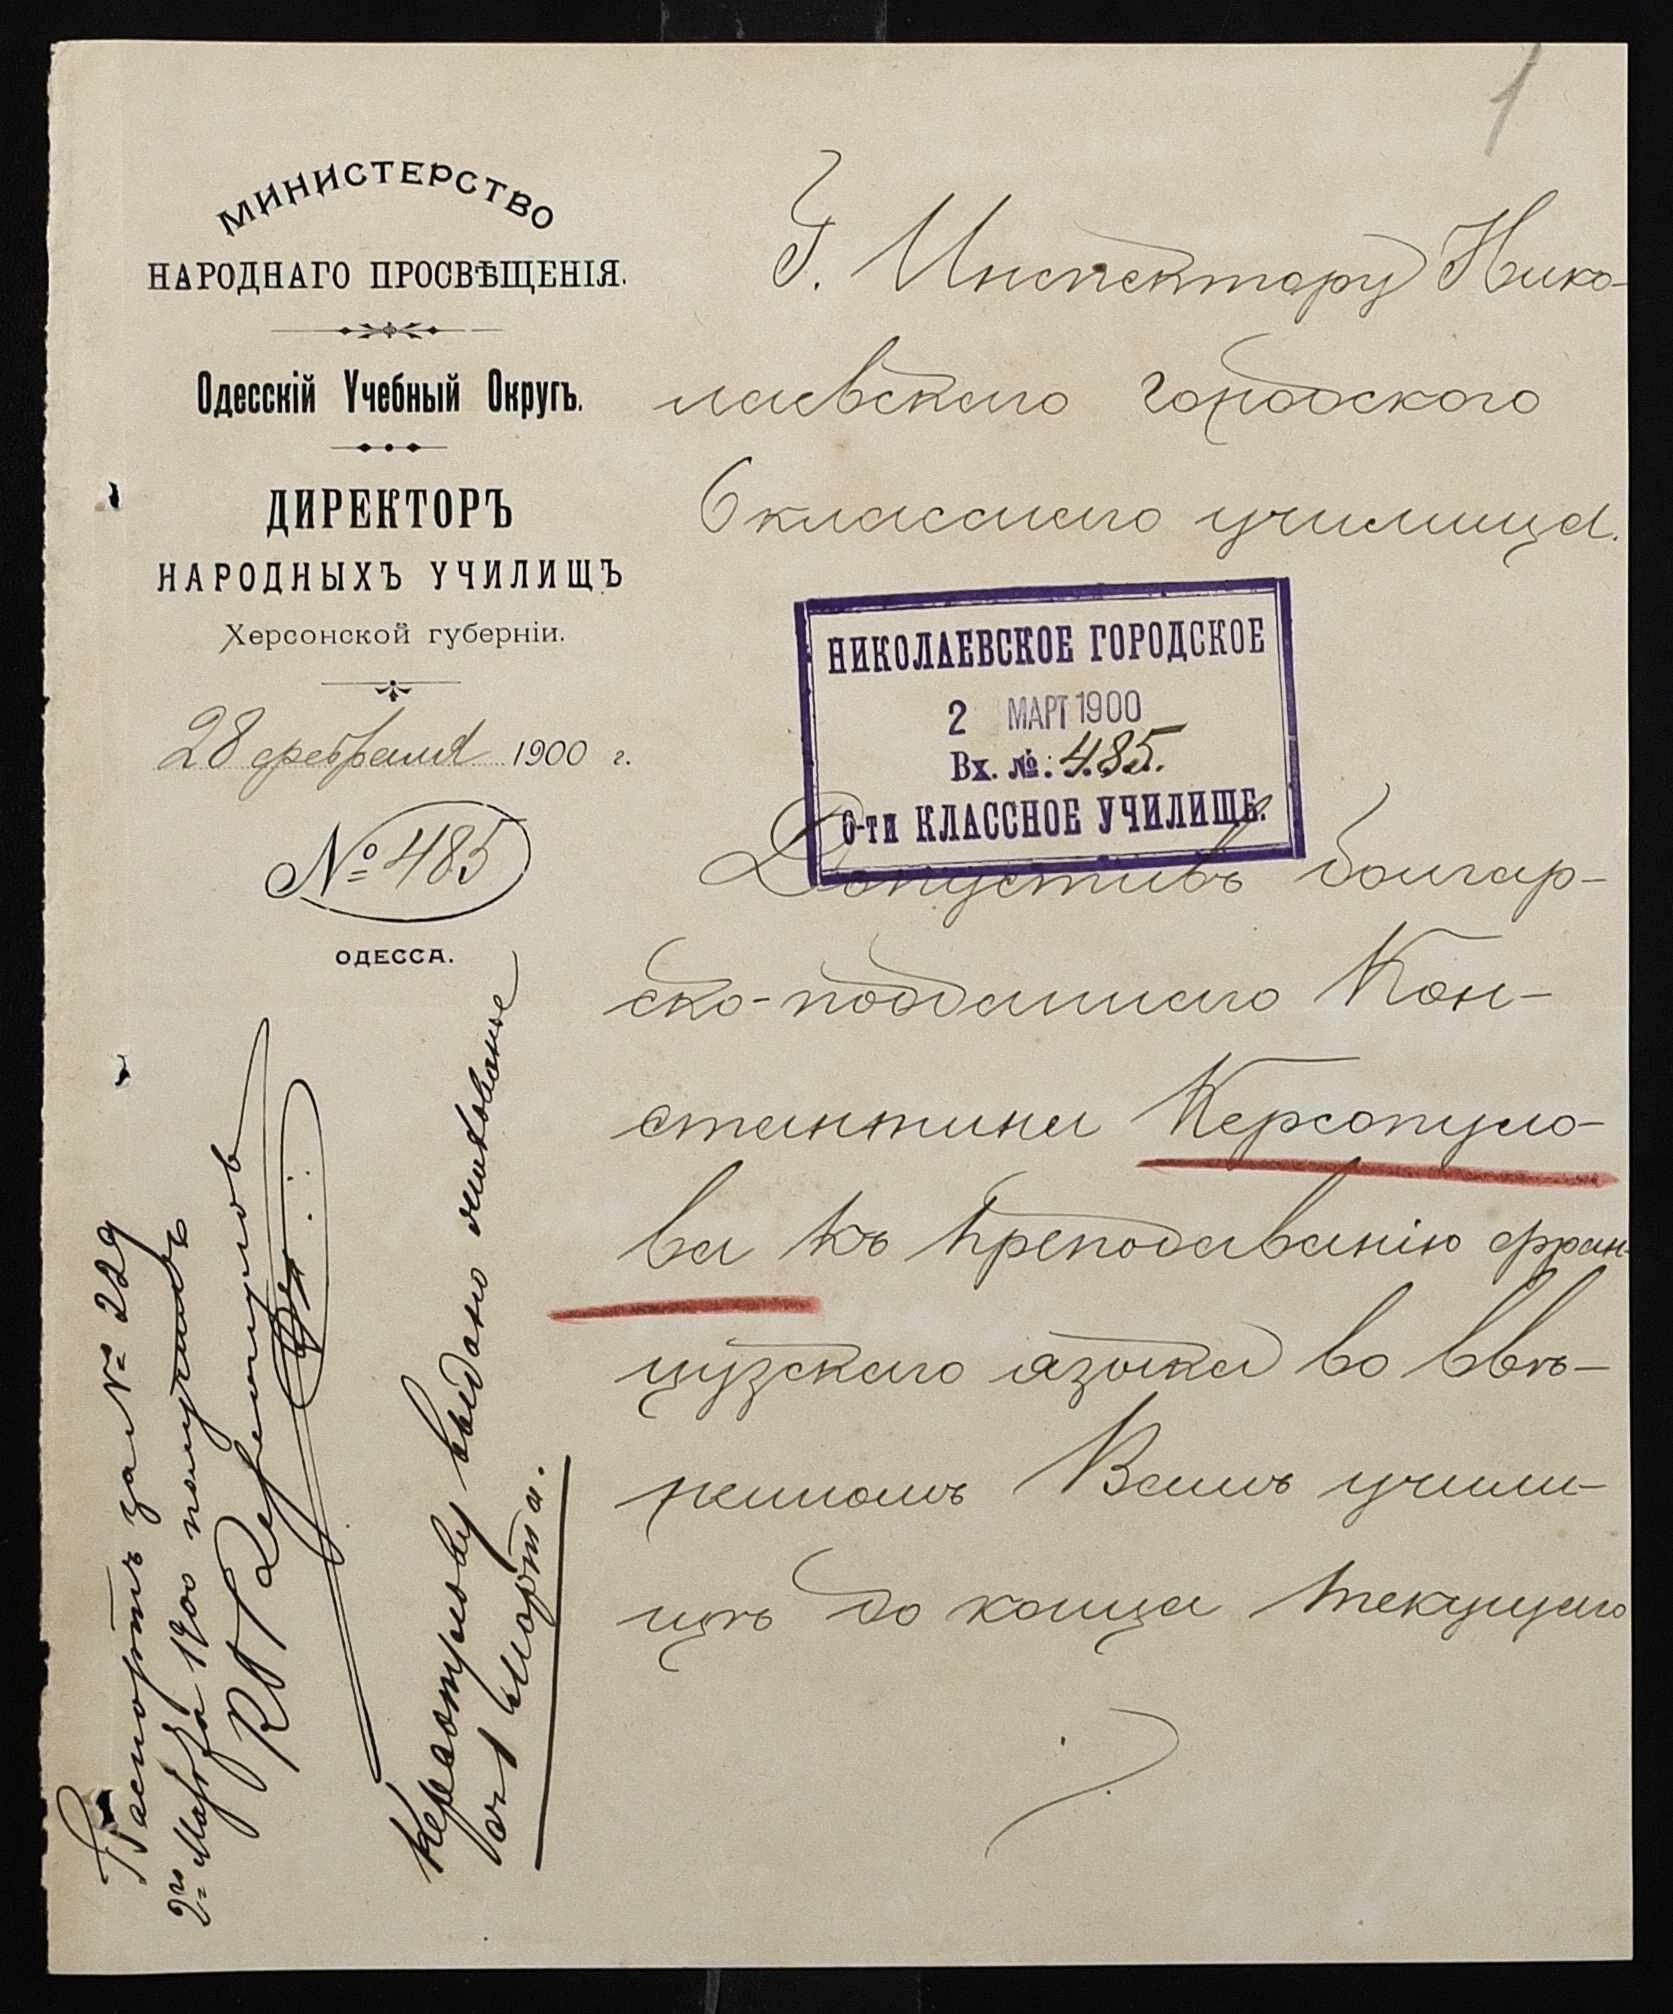 1
МИНИСТЕРСТВО
НАРОДНАГО ПРОСВѢЩЕНІЯ.
Одесскій Учебный Округъ.
ДИРЕКТОРЪ
НАРОДНЫХЪ УЧИЛИЩЪ
Херсонской губерніи.
28 февраля 1900 г.
№ 485
ОДЕССА.
Г. Инспектору Нико-
лаевскаго городского
6 класснаго училища.
НИКОЛАЕВСКОЕ ГОРОДСКОЕ
2 МАРТ 1900
Вх. №: 485.
6-ти КЛАССНОЕ УЧИЛИЩЕ.
Допустивъ болгар-
ско-подданнаго Кон-
стантина Керсопуло-
ва къ преподаванію фран-
цузскаго языка во ввѣ-
ренномъ Вамъ учили-
щѣ до конца текущаго
Паспортъ за № 229
2го Марта 1900 получилъ
К Керсопулов
Керсопулову выдано
от 1 марта.